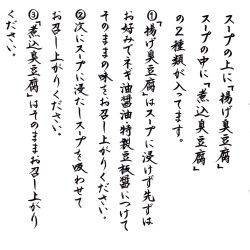 スープの上に「揚げ臭豆腐」
スープの中に「煮込臭豆腐」
の２種類が入ってます。
①「揚げ臭豆腐」はスープに浸けず先ずは
お好みでネギ油醤油・特製豆板醤につけて
そのままの味をお召し上がりください。
②次にスープに浸たしスープを吸わせて
お召し上がりください。
③「煮込臭豆腐」はそのままお召し上がり
ください。